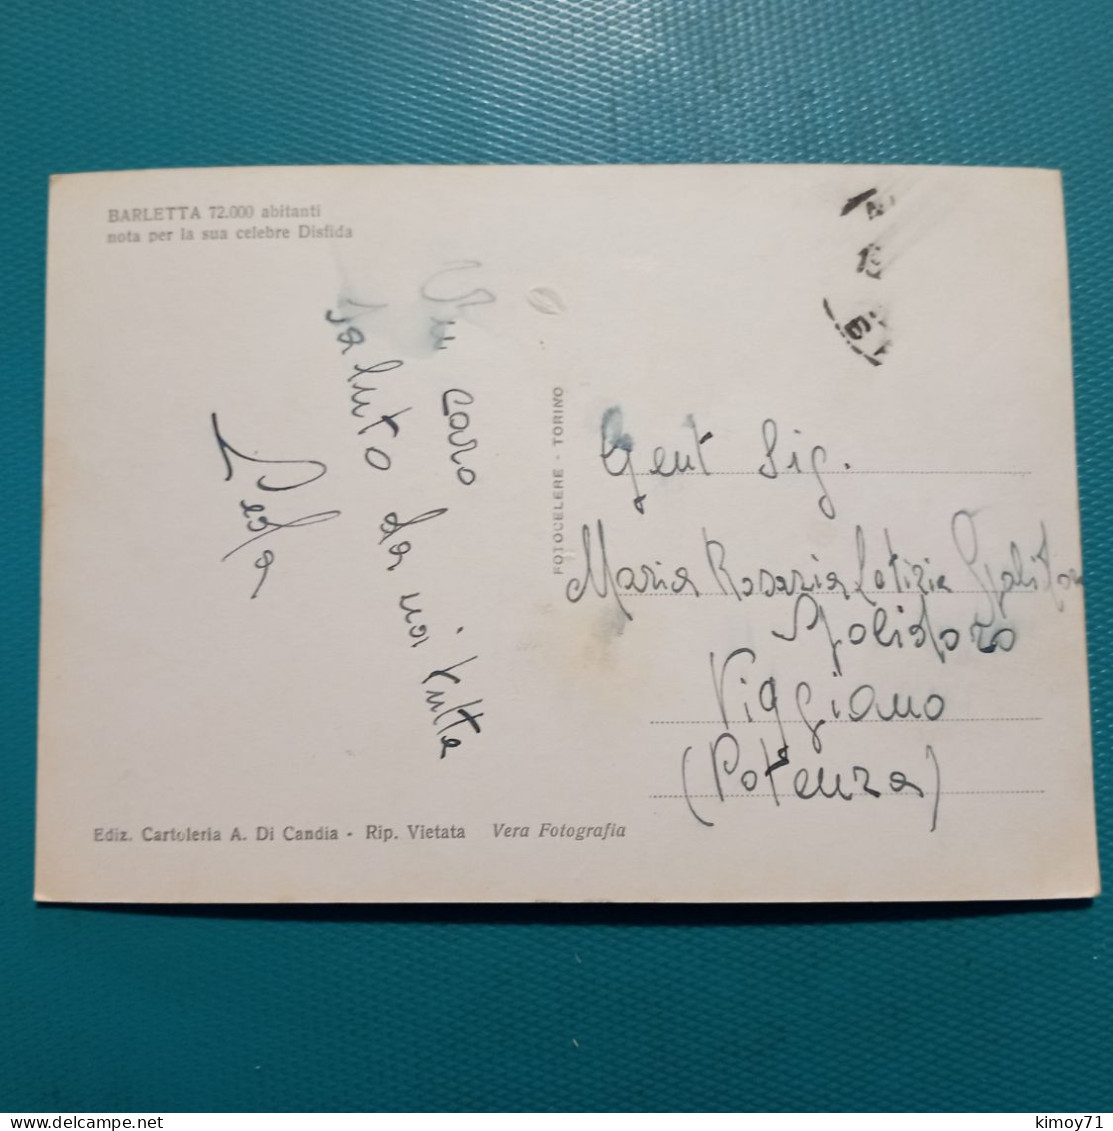 BARLETTA 72.000 abitanti
nota per la sua celebre Disfida
Un caro
saluto da noi tutte
FOTOCELERE - TORINO
Gent Sig.
Maria Rosaria Letizia
Viggiano
(Potenza)
Ediz. Cartoleria A. Di Candia - Rip. Vietata Vera Fotografia
kimoy71